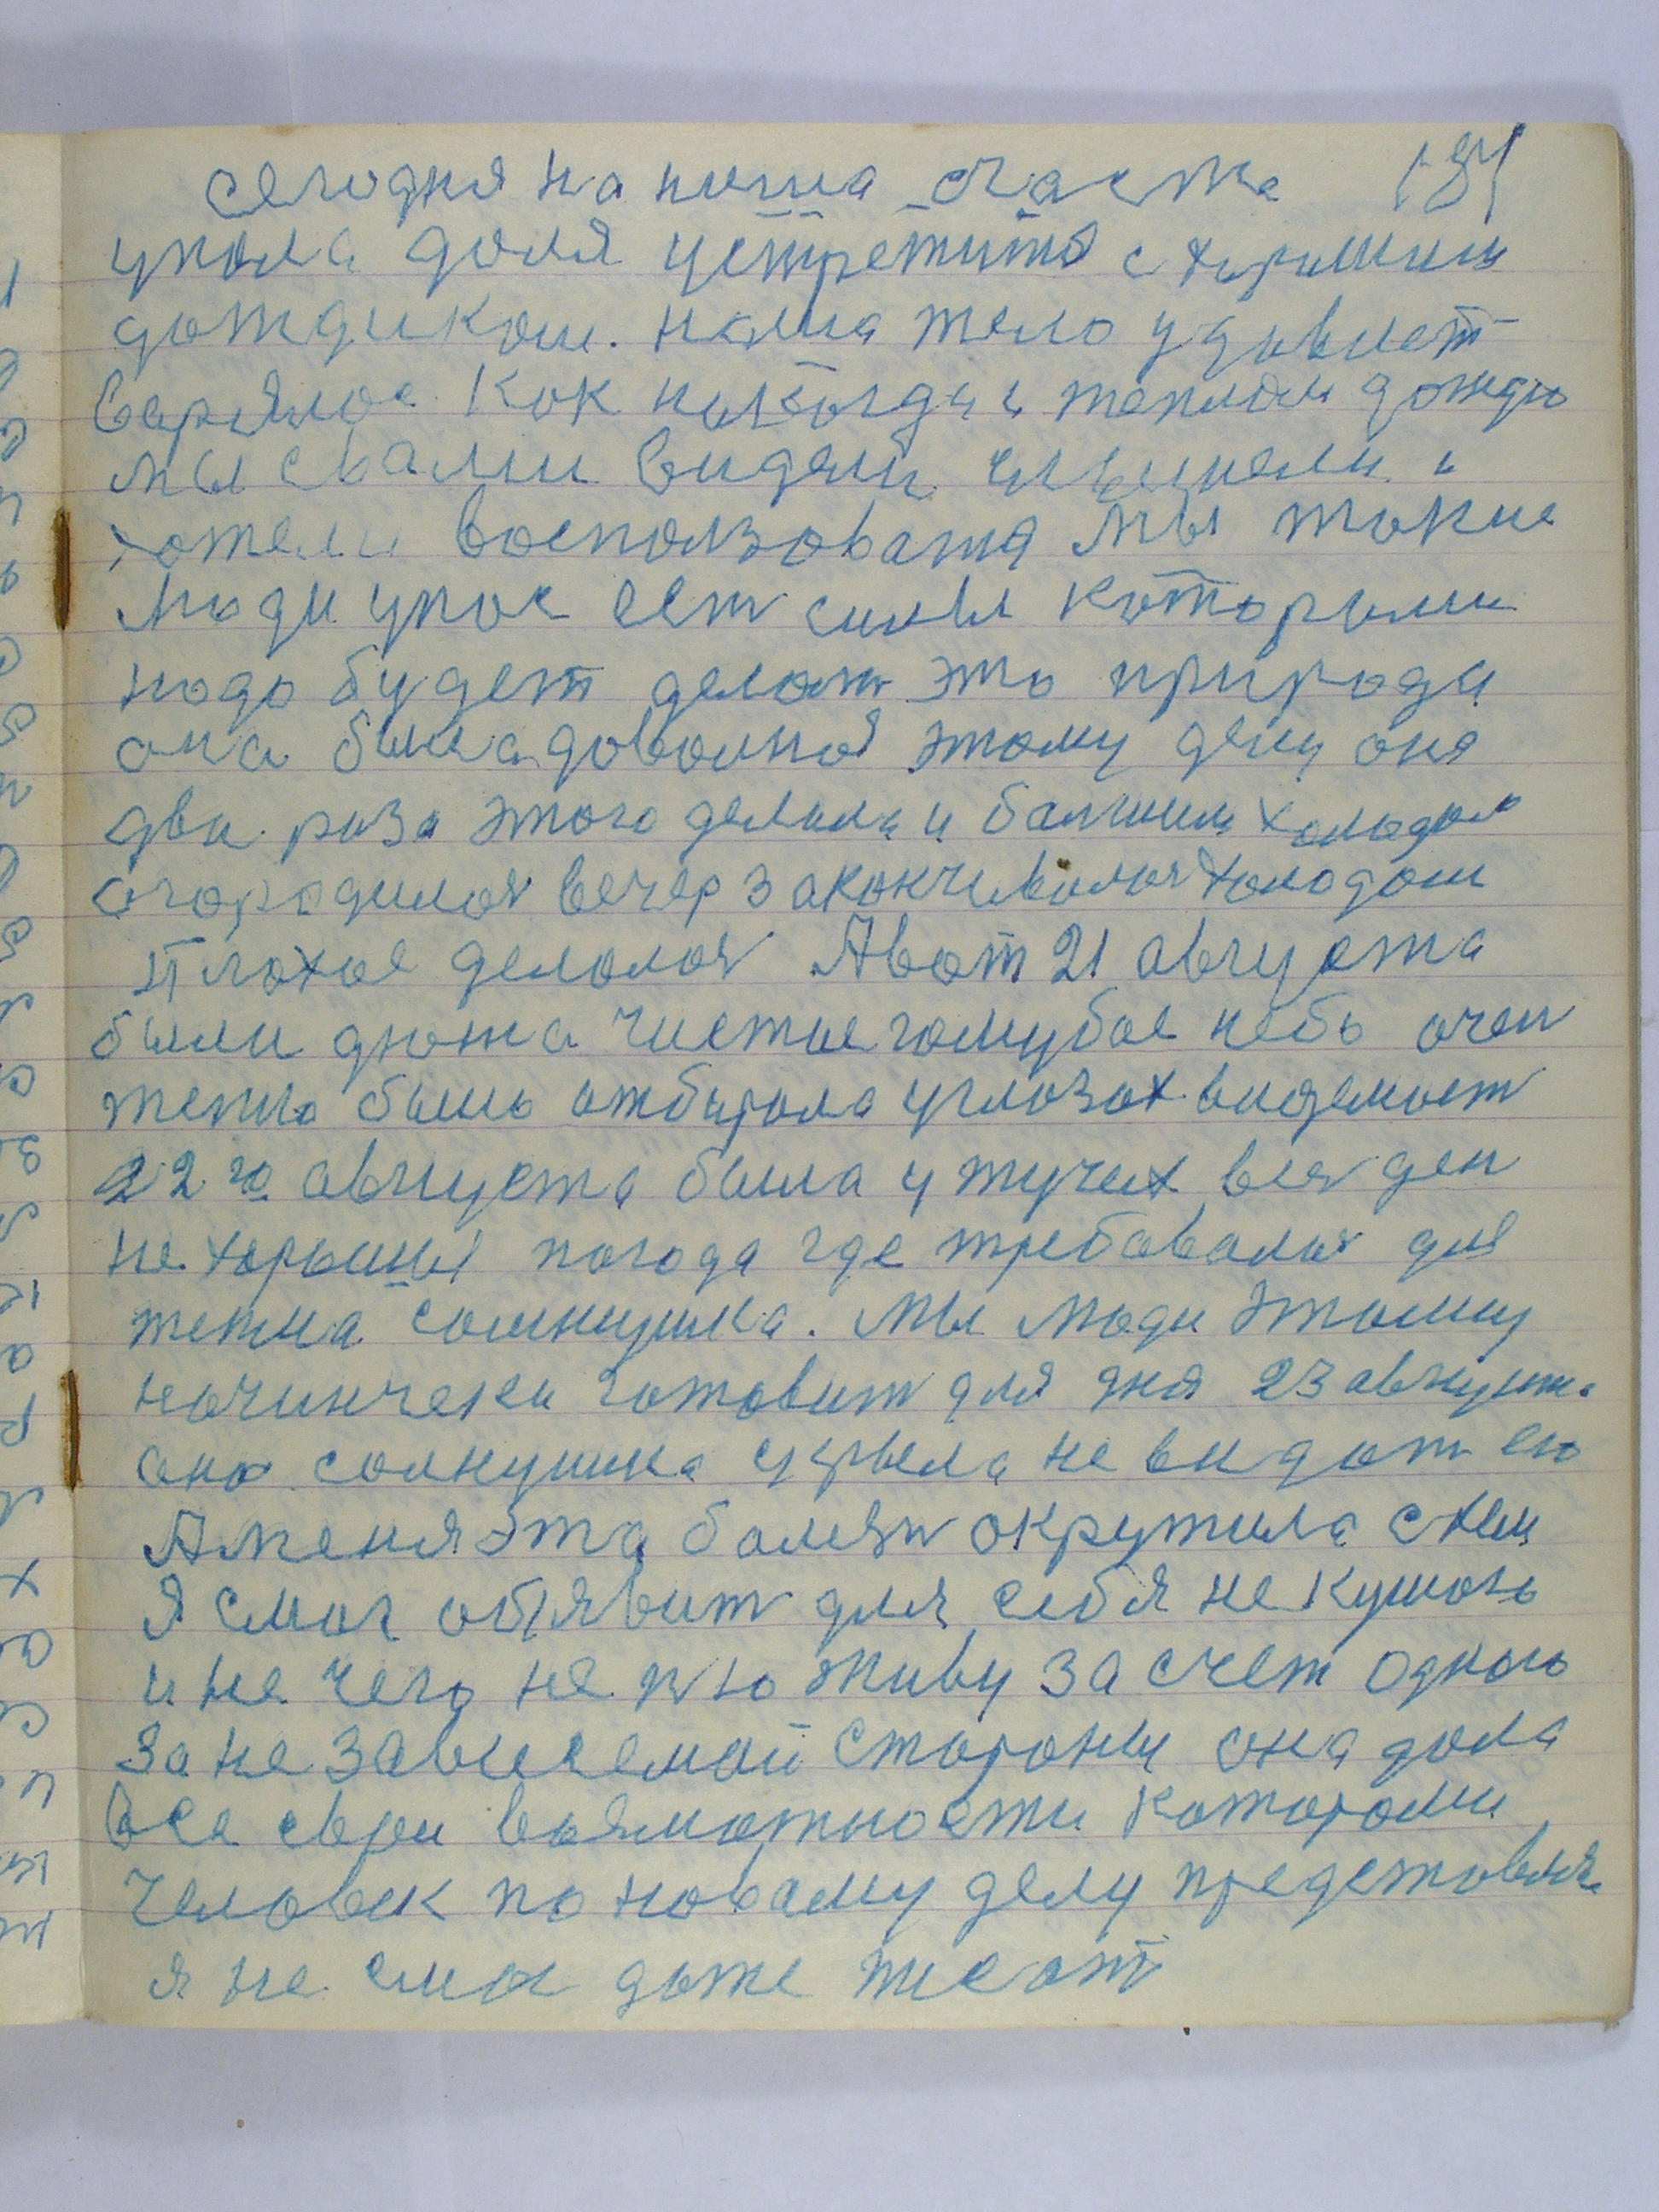 сегодня на наша счаста 181
упала доля устретится с хорошим
дождиком. наша тело удовлет
варялос. Как никогда и теплом дождю
мы свами видели. и
хотели воспользоватся Мы такие
люди унас ест силы которыми
надо будет делат это природа
она была доволная этому делу она
два раза этого делала и балшим холодом
огородилася вечер закончивался холодом
Плохое делолоя Авот 21 августа
были дюжа чистые голубое небо очен
тепло было отбирала углозах видемост
22 го августа была утучах вся ден
не хорошая погода где требавалоя для
тепла солнушка. Мы люди этому
начиначеки готовит для дня 23 августа
она солнушка укрыла не видат ею
Аменя эта болезн окружила с нем
Я смог обявит для себя не кушаю
и не чего не пю живу за счет одного
за не завиcемай стороны она дала
все свои возможности которами
Человек по новаму делу представля
я не смог даже писат